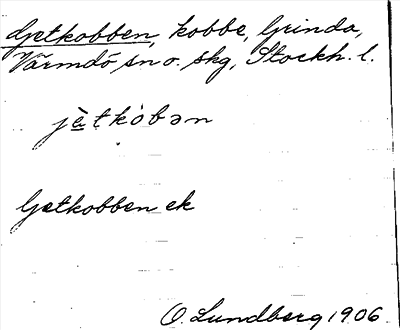 Getkobben, kobbe, Grinda,
Värmdö sn o. skg, Stockh. l.
jè̠tkòbən
Getkobben ek
O. Lundberg 1906